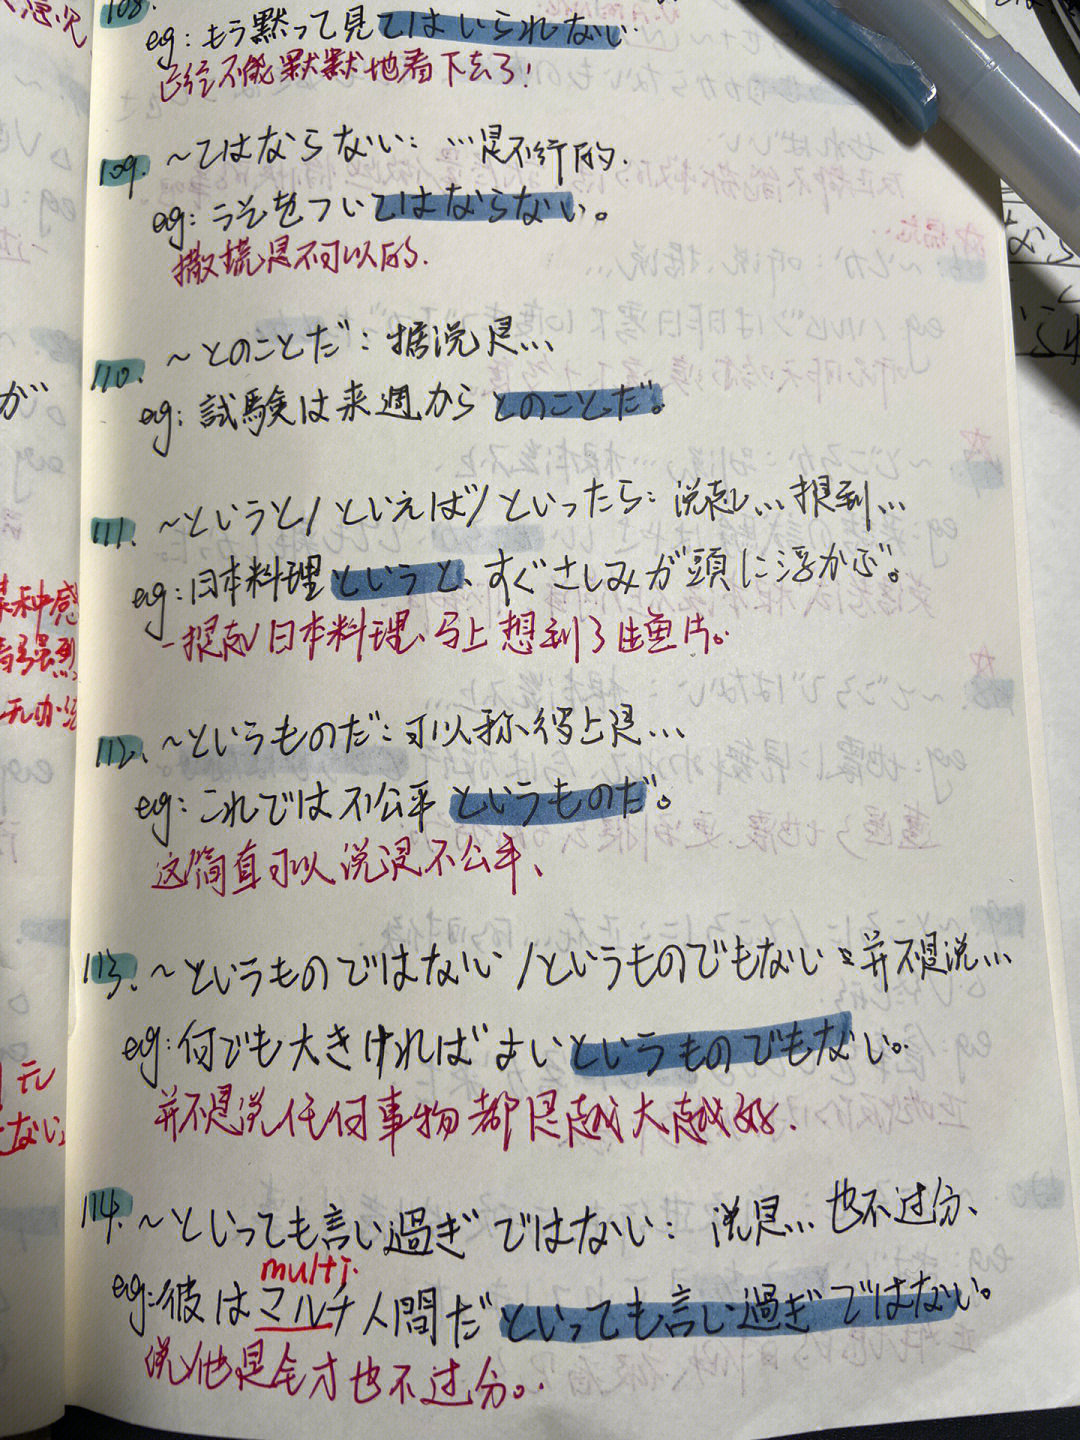 108.
eg: もう黙って見てはいられない.
已经不能默默地看下去了!
109. ～てはならない: …是不行的.
eg: うそをついてはならない。
撒谎是不可以的.
110. ～とのことだ: 据说是…
eg: 試験は来週からとのことだ。
111. ～というと/といえば/といったら: 说起… 提到…
eg: 日本料理というと、すぐさしみが頭に浮かぶ。
一提起日本料理、马上想到了生鱼片。
112. ～というものだ: 可以称得上是…
eg: これでは不公平というものだ。
这简直可以说是不公平、
113. ～というものではない/というものでもない: 并不是说…
eg: 何でも大きければよいというものでもない。
并不是说任何事物都是越大越好.
114. ～といっても言い過ぎではない: 说是… 也不过分、
multi.
eg: 彼はマルチ人間だといっても言い過ぎではない。
说他是全才也不过分。